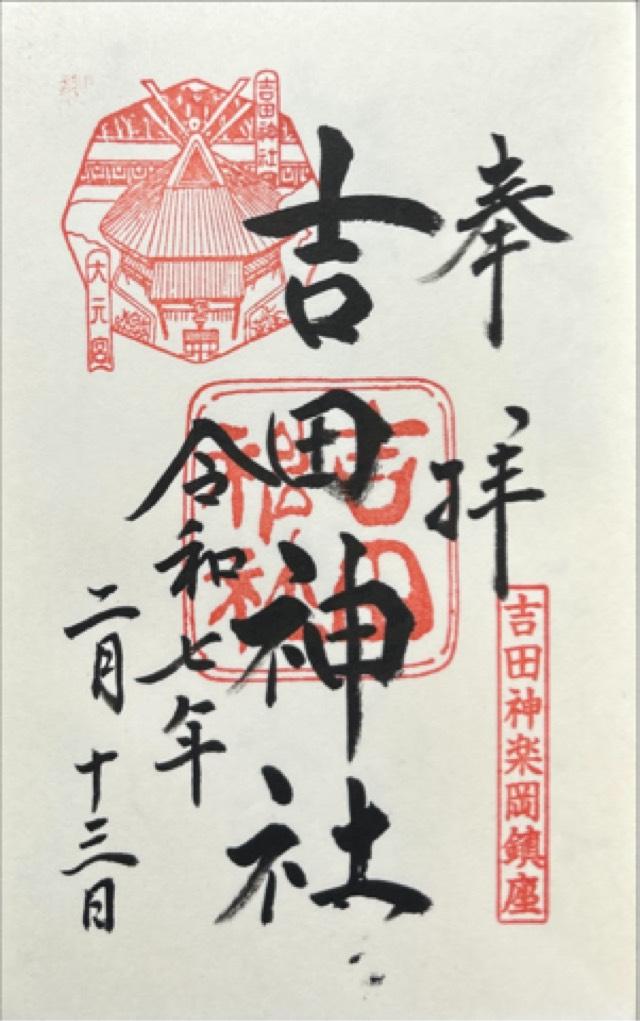 奉拝
吉田神楽岡鎮座
吉田神社
吉田神社
令和七年
二月十三日
吉田神社
大元宮